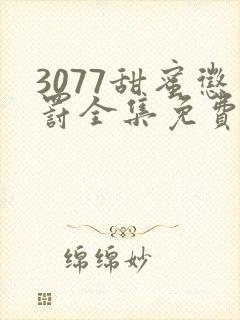 3077甜蜜懲
罸全集免費
绵绵妙